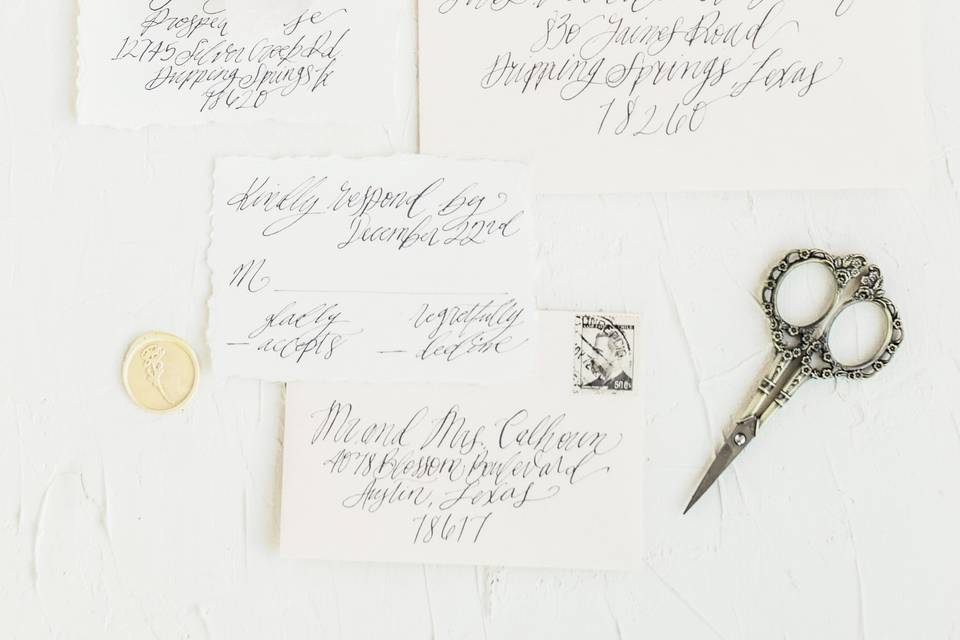 12745 Silver Creek Rd
Dripping Springs tx
78620
830 Gaines Road
Dripping Springs, Texas
78260
Kindly respond by
December 22nd
M
gladly regretfully
accepts decline
CHILE
Mr. and Mrs. Calhoun
4078 Blossom Boulevard
Austin, Texas
78617